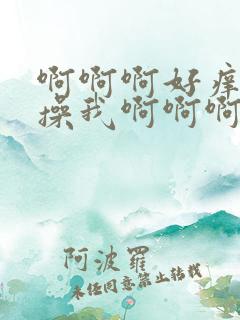 啊啊啊好痒
操我啊啊啊
阿波罗
未经同意禁止转载